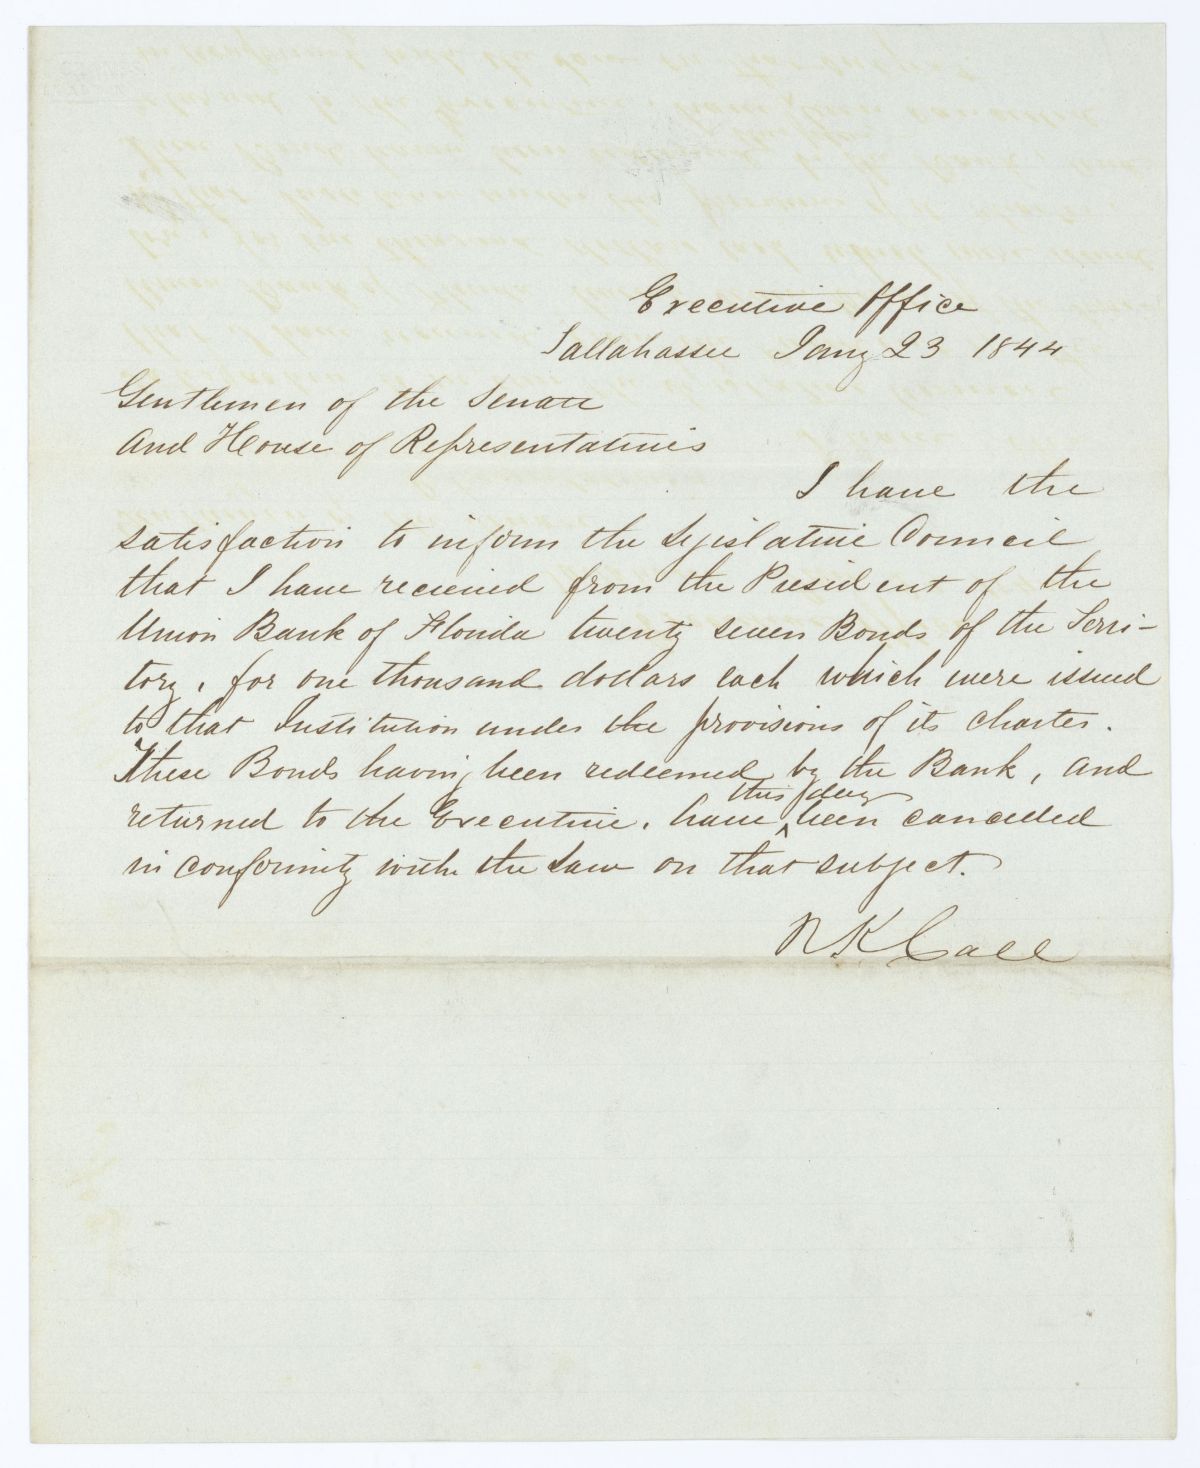 Executive Office
Tallahassee Jany 23 1844
Gentlemen of the Senate
And House of Representatives
I have the
satisfaction to inform the Legislative Council
that I have recieved from the President of the
Union Bank of Florida twenty seven Bonds of the Terri-
tory, for one thousand dollars each which were issued
to that Institution under the provisions of its charter.
These Bonds having been redeemed by the Bank, and
this day
returned to the Executive, have ^ been cancelled
in conformity with the Law on that subject.
R K Call